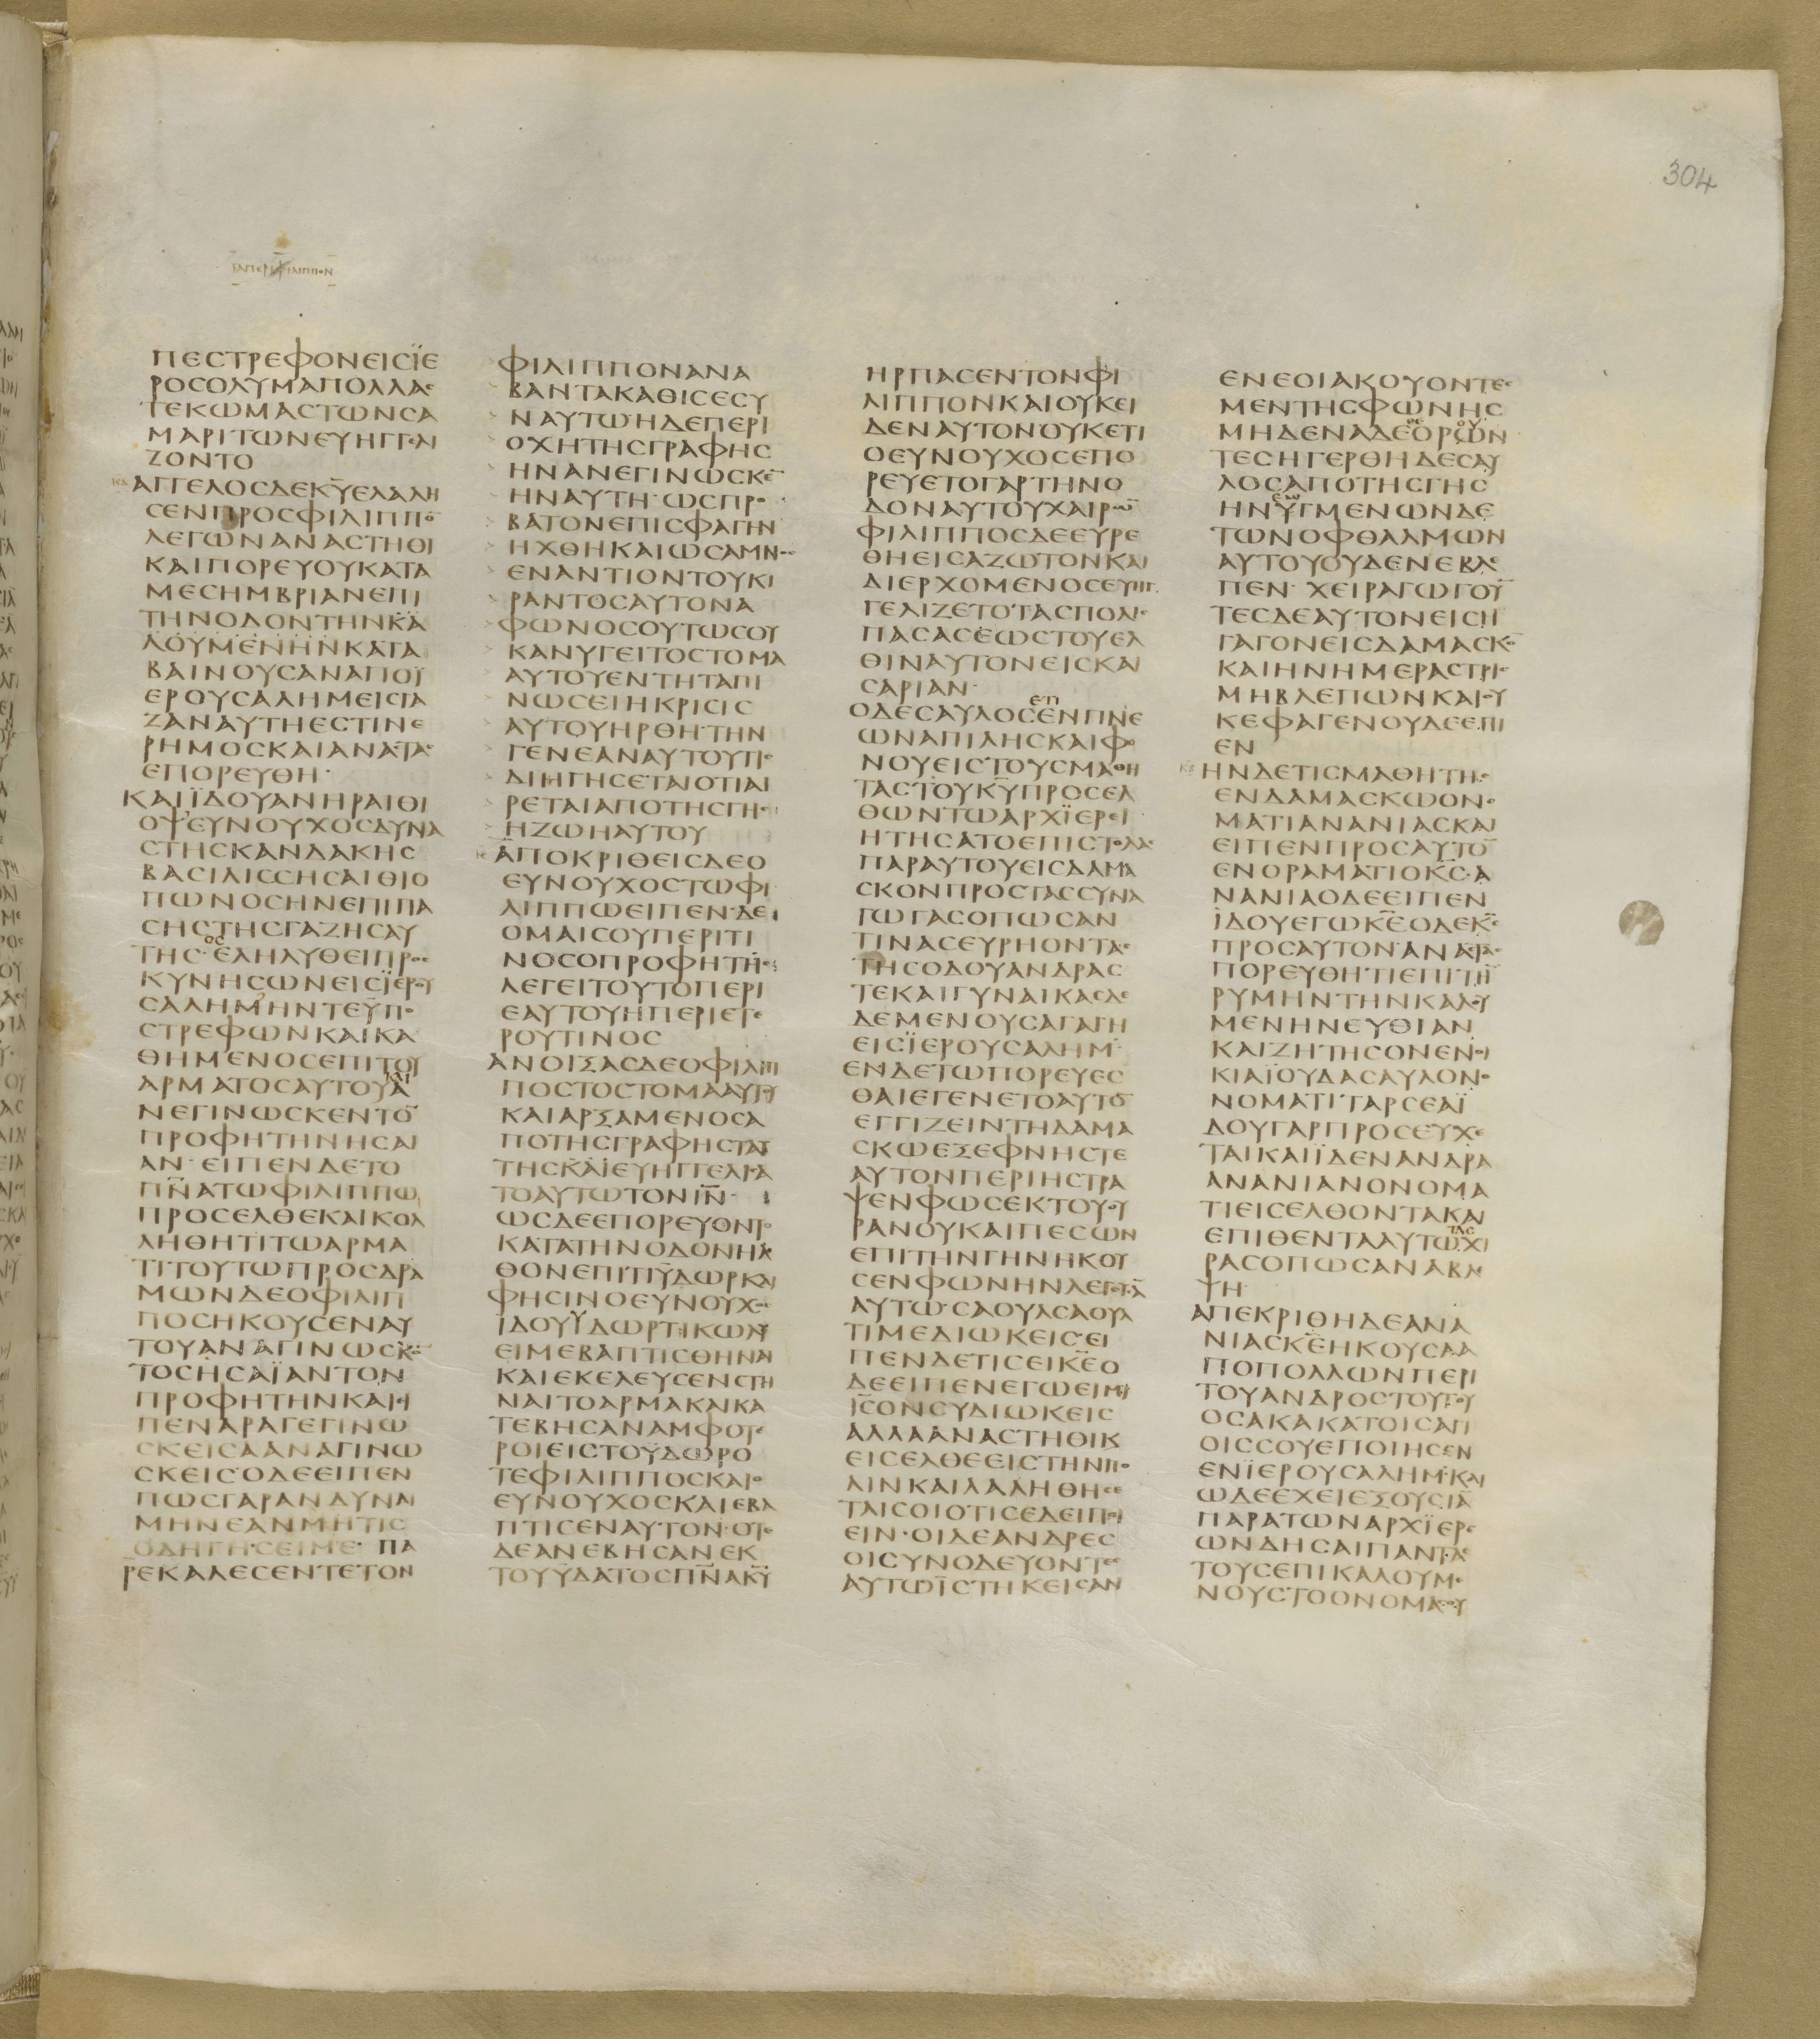 304
ΤΑΠΕΡΙΦΙΛΙΠΠΟΝ
ΠΕСΤΡΕΦΟΝΕΙСΪΕ
ΡΟСΟΛΥΜΑΠΟΛΛΑС
ΤΕΚΩΜΑСΤΩΝСΑ
ΜΑΡΙΤΩΝΕΥΗΓΓΕΛΙ
ΖΟΝΤΟ
ΑΓΓΕΛΟСΔΕΚ̅Υ̅ΕΛΑΛΗ
СΕΝΠΡΟСΦΙΛΙΠΠΟ̅
ΛΕΓΩΝΑΝΑСΤΗΘΙ
ΚΑΙΠΟΡΕΥΟΥΚΑΤΑ
ΜΕСΗΜΒΡΙΑΝΕΠΙ
ΤΗΝΟΔΟΝΤΗΝΚΑ
ΛΟΥΜΕΝΗΝΚΑΤΑ
ΒΑΙΝΟΥСΑΝΑΠΟΪ
ΕΡΟΥСΑΛΗΜΕΙСΓΑ
ΖΑΝΑΥΤΗΕСΤΙΝΕ
ΡΗΜΟСΚΑΙΑΝΑСΤΑС
ΕΠΟΡΕΥΘΗ·
ΚΑΙΪΔΟΥΑΝΗΡΑΙΘΙ
ΟΨΕΥΝΟΥΧΟСΔΥΝΑ
СΤΗСΚΑΝΔΑΚΗС
ΒΑСΙΛΙССΗСΑΙΘΙΟ
ΠΩΝΟСΗΝΕΠΙΠΑ
СΗСΤΗСΓΑΖΗСΑΥ
ΤΗС·ΟСΕΛΗΛΥΘΕΙΠΡΟС
ΚΥΝΗСΩΝΕΙСΪΕΡΟΥ
СΑΛΗΜΗΝΤΕΫΠΟ
СΤΡΕΦΩΝΚΑΙΚΑ
ΘΗΜΕΝΟСΕΠΙΤΟΥ
ΑΡΜΑΤΟСΑΥΤΟΥΚΑΙΑ
ΝΕΓΙΝΩСΚΕΝΤΟ̅
ΠΡΟΦΗΤΗΝΗСΑΙ
ΑΝ·ΕΙΠΕΝΔΕΤΟ
Π̅Ν̅ΑΤΩΦΙΛΙΠΠΩ
ΠΡΟСΕΛΘΕΚΑΙΚΟΛ
ΛΗΘΗΤΙΤΩΑΡΜΑ
ΤΙΤΟΥΤΩΠΡΟСΔΡΑ
ΜΩΝΔΕΟΦΙΛΙΠ
ΠΟСΗΚΟΥСΕΝΑΥ
ΤΟΥΑΝΑΓΙΝΩСΚΟ̅
ΤΟСΗСΑΪΑΝΤΟΝ
ΠΡΟΦΗΤΗΝΚΑΙΕΙ
ΠΕΝΑΡΑΓΕΓΙΝΩ
СΚΕΙСΑΑΝΑΓΙΝΩ
СΚΕΙС·ΟΔΕΕΙΠΕΝ
ΠΩСΓΑΡΑΝΔΥΝΑΙ
ΜΗΝΕΑΝΜΗΤΙС
ΟΔΗΓΗСΕΙΜΕ·ΠΑ
ΡΕΚΑΛΕСΕΝΤΕΤΟΝ
ΦΙΛΙΠΠΟΝΑΝΑ
ΒΑΝΤΑΚΑΘΙСΕСΥ
ΝΑΥΤΩΗΔΕΠΕΡΙ
ΟΧΗΤΗСΓΡΑΦΗС
ΗΝΑΝΕΓΙΝΩСΚΕ̅
ΗΝΑΥΤΗ·ΩСΠΡΟ
ΒΑΤΟΝΕΠΙСΦΑΓΗΝ
ΗΧΘΗΚΑΙΩСΑΜΝΟС
ΕΝΑΝΤΙΟΝΤΟΥΚΙ
ΡΑΝΤΟСΑΥΤΟΝΑ
ΦΩΝΟСΟΥΤΩСΟΥ
ΚΑΝΥΓΕΙΤΟСΤΟΜΑ
ΑΥΤΟΥΕΝΤΗΤΑΠΙ
ΝΩСΕΙΗΚΡΙСΙС
ΑΥΤΟΥΗΡΘΗ·ΤΗΝ
ΓΕΝΕΑΝΑΥΤΟΥΤΙС
ΔΙΗΓΗСΕΤΑΙΟΤΙΑΙ
ΡΕΤΑΙΑΠΟΤΗСΓΗС
ΗΖΩΗΑΥΤΟΥ
ΑΠΟΚΡΙΘΕΙСΔΕΟ
ΕΥΝΟΥΧΟСΤΩΦΙ
ΛΙΠΠΩΕΙΠΕΝ·ΔΕ
ΟΜΑΙСΟΥΠΕΡΙΤΙ
ΝΟСΟΠΡΟΦΗΤΗС
ΛΕΓΕΙΤΟΥΤΟΠΕΡΙ
ΕΑΥΤΟΥΗΠΕΡΙΕΤΕ
ΡΟΥΤΙΝΟС
ΑΝΟΙΞΑСΔΕΟΦΙΛΙΠ
ΠΟСΤΟСΤΟΜΑΑΥΤΟΥ
ΚΑΙΑΡΞΑΜΕΝΟСΑ
ΠΟΤΗСΓΡΑΦΗСΤΑΥ
ΤΗСΚΑΙΕΥΗΓΓΕΛΙСΑ
ΤΟΑΥΤΩΤΟΝΙ̅Ν̅·
ΩСΔΕΕΠΟΡΕΥΟΝΤΟ
ΚΑΤΑΤΗΝΟΔΟΝΗΛ
ΘΟΝΕΠΙΤΙΫΔΩΡΚΑΙ
ΦΗСΙΝΟΕΥΝΟΥΧΟС
ΙΔΟΥΫΔΩΡΤΙΚΩΛΥ
ΕΙΜΕΒΑΠΤΙСΘΗΝΑΙ
ΚΑΙΕΚΕΛΕΥСΕΝСΤΗ
ΝΑΙΤΟΑΡΜΑΚΑΙΚΑ
ΤΕΒΗСΑΝΑΜΦΟΤΕ
ΡΟΙΕΙСΤΟΫΔΩΡΟ
ΤΕΦΙΛΙΠΠΟСΚΑΙΟ
ΕΥΝΟΥΧΟСΚΑΙΕΒΑ
ΠΤΙСΕΝΑΥΤΟΝ·ΟΤΕ
ΔΕΑΝΕΒΗСΑΝΕΚ
ΤΟΥΫΔΑΤΟСΠ̅Ν̅ΑΚ̅Υ̅
ΗΡΠΑСΕΝΤΟΝΦΙ
ΛΙΠΠΟΝΚΑΙΟΥΚΕΙ
ΔΕΝΑΥΤΟΝΟΥΚΕΤΙ
ΟΕΥΝΟΥΧΟСΕΠΟ
ΡΕΥΕΤΟΓΑΡΤΗΝΟ
ΔΟΝΑΥΤΟΥΧΑΙΡΩ̅
ΦΙΛΙΠΠΟСΔΕΕΥΡΕ
ΘΗΕΙСΑΖΩΤΟΝΚΑΙ
ΔΙΕΡΧΟΜΕΝΟСΕΥΗΓ
ΓΕΛΙΖΕΤΟΤΑСΠΟΛΙС
ΠΑСΑСΕΩСΤΟΥΕΛ
ΘΙΝΑΥΤΟΝΕΙСΚΑΙ
СΑΡΙΑΝ·
ΟΔΕСΑΥΛΟСΕΝΠΝΕ
ΩΝΑΠΙΛΗСΚΑΙΦΟ
ΝΟΥΕΙСΤΟΥСΜΑΘΗ
ΤΑСΤΟΥΚ̅Υ̅ΠΡΟСΕΛ
ΘΩΝΤΩΑΡΧΪΕΡΕΙ
ΗΤΗСΑΤΟΕΠΙСΤΟΛΑС
ΠΑΡΑΥΤΟΥΕΙСΔΑΜΑ
СΚΟΝΠΡΟСΤΑССΥΝΑ
ΓΩΓΑСΟΠΩСΑΝ
ΤΙΝΑСΕΥΡΗΟΝΤΑС
ΤΗСΟΔΟΥΑΝΔΡΑС
ΤΕΚΑΙΓΥΝΑΙΚΑСΔΕ
ΔΕΜΕΝΟΥСΑΓΑΓΗ
ΕΙСΪΕΡΟΥСΑΛΗΜ·
ΕΝΔΕΤΩΠΟΡΕΥΕС
ΘΑΙΕΓΕΝΕΤΟΑΥΤΟ̅
ΕΓΓΙΖΕΙΝΤΗΔΑΜΑ
СΚΩΕΞΕΦΝΗСΤΕ
ΑΥΤΟΝΠΕΡΙΗСΤΡΑ
ΨΕΝΦΩСΕΚΤΟΥΟΥ
ΡΑΝΟΥΚΑΙΠΕСΩΝ
ΕΠΙΤΗΝΓΗΝΗΚΟΥ
СΕΝΦΩΝΗΝΛΕΓΟΥСΑ̅
ΑΥΤΩ·СΑΟΥΛСΑΟΥΛ
ΤΙΜΕΔΙΩΚΕΙС·ΕΙ
ΠΕΝΔΕΤΙСΕΙΚ̅Ε̅Ο
ΔΕΕΙΠΕΝΕΓΩΕΙΜΙ
Ι̅С̅ΟΝСΥΔΙΩΚΕΙС
ΑΛΛΑΑΝΑСΤΗΘΙΚ
ΕΙСΕΛΘΕΕΙСΤΗΝΠΟ
ΛΙΝΚΑΙΛΑΛΗΘΗСΕ
ΤΑΙСΟΙΟΤΙСΕΔΕΙΠΟΙ
ΕΙΝ·ΟΙΔΕΑΝΔΡΕС
ΟΙСΥΝΟΔΕΥΟΝΤΕС
ΑΥΤΩΪСΤΗΚΕΙСΑΝ
ΕΝΕΟΙΑΚΟΥΟΝΤΕС
ΜΕΝΤΗСΦΩΝΗС
ΜΗΔΕΝΑΔΕΟΡΩΝ
ΤΕСΗΓΕΡΘΗΔΕСΑΥ
ΛΟСΑΠΟΤΗСΓΗС
ΗΝΥΓΜΕΝΩΝΔΕ
ΤΩΝΟΦΘΑΛΜΩΝ
ΑΥΤΟΥΟΥΔΕΝΕΒΛΕ
ΠΕΝ·ΧΕΙΡΑΓΩΓΟΥ̅
ΤΕСΔΕΑΥΤΟΝΕΙСΗ
ΓΑΓΟΝΕΙСΔΑΜΑСΚΟ̅
ΚΑΙΗΝΗΜΕΡΑСΤΡΙС
ΜΗΒΛΕΠΩΝΚΑΙΟΥ
ΚΕΦΑΓΕΝΟΥΔΕΕΠΙ
ΕΝ
ΗΝΔΕΤΙСΜΑΘΗΤΗС
ΕΝΔΑΜΑСΚΩΟΝΟ
ΜΑΤΙΑΝΑΝΙΑСΚΑΙ
ΕΙΠΕΝΠΡΟСΑΥΤΟ̅
ΕΝΟΡΑΜΑΤΙΟΚ̅С̅·Α
ΝΑΝΙΑΟΔΕΕΙΠΕΝ
ΪΔΟΥΕΓΩΚ̅Ε̅ΟΔΕΚ̅С̅
ΠΡΟСΑΥΤΟΝ·ΑΝΑСΤΑС
ΠΟΡΕΥΘΗΤΙΕΠΙΤΗ̅
ΡΥΜΗΝΤΗΝΚΑΛΟΥ
ΜΕΝΗΝΕΥΘΙΑΝ
ΚΑΙΖΗΤΗСΟΝΕΝΟΙ
ΚΙΑΪΟΥΔΑСΑΥΛΟΝΟ
ΝΟΜΑΤΙΤΑΡСΕΑΪ
ΔΟΥΓΑΡΠΡΟСΕΥΧΕ
ΤΑΙΚΑΙΪΔΕΝΑΝΔΡΑ
ΑΝΑΝΙΑΝΟΝΟΜΑ
ΤΙΕΙСΕΛΘΟΝΤΑΚΑΙ
ΕΠΙΘΕΝΤΑΑΥΤΩΤΑСΧΙ
ΡΑСΟΠΩСΑΝΑΒΛΕ
ΨΗ·
ΑΠΕΚΡΙΘΗΔΕΑΝΑ
ΝΙΑСΚ̅Ε̅ΗΚΟΥСΑΑ
ΠΟΠΟΛΛΩΝΠΕΡΙ
ΤΟΥΑΝΔΡΟСΤΟΥΤΟΥ
ΟСΑΚΑΚΑΤΟΙСΑΓΙ
ΟΙССΟΥΕΠΟΙΗСΕΝ
ΕΝΪΕΡΟΥСΑΛΗΜ·ΚΑΙ
ΩΔΕΕΧΕΙΕΞΟΥСΙΑ̅
ΠΑΡΑΤΩΝΑΡΧΪΕΡΕ
ΩΝΔΗСΑΙΠΑΝΤΑС
ΤΟΥСΕΠΙΚΑΛΟΥΜΕ
ΝΟΥСΤΟΟΝΟΜΑСΟΥ